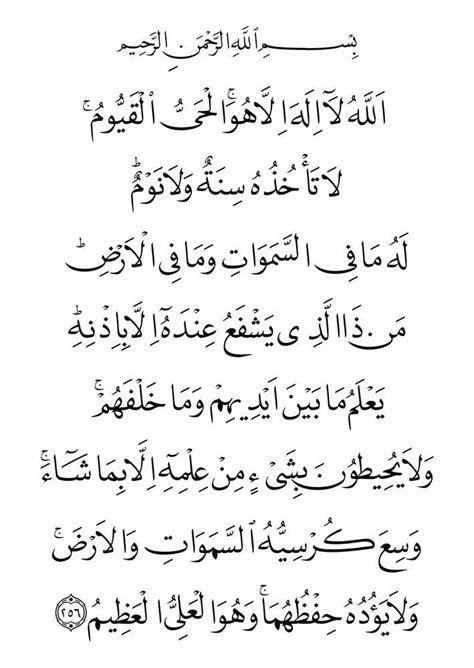 بِسْمِ ٱللَّهِ الرَّحْمَنِ الرَّحِيمِ
اَللَّهُ لَآ اِلَهَ اِلَّا هُوَ ۚ الْحَيُّ الْقَيُّومُ ۚ
لَا تَأْخُذُهُ سِنَةٌ وَلَا نَوْمٌ ۗ
لَهُ مَا فِي السَّمَوَاتِ وَمَا فِي الْاَرْضِ ۗ
مَنْ ذَا الَّذِي يَشْفَعُ عِنْدَهُٓ اِلَّا بِاِذْنِهِ ۗ
يَعْلَمُ مَا بَيْنَ اَيْدِيهِمْ وَمَا خَلْفَهُمْ ۚ
وَلَا يُحِيطُونَ بِشَيْءٍ مِنْ عِلْمِهِٓ اِلَّا بِمَا شَآءَ ۚ
وَسِعَ كُرْسِيُّهُ السَّمَوَاتِ وَالْاَرْضَ ۚ
وَلَا يَؤُدُهُ حِفْظُهُمَا ۚ وَهُوَ الْعَلِيُّ الْعَظِيمُ ﴿٢٥٦﴾